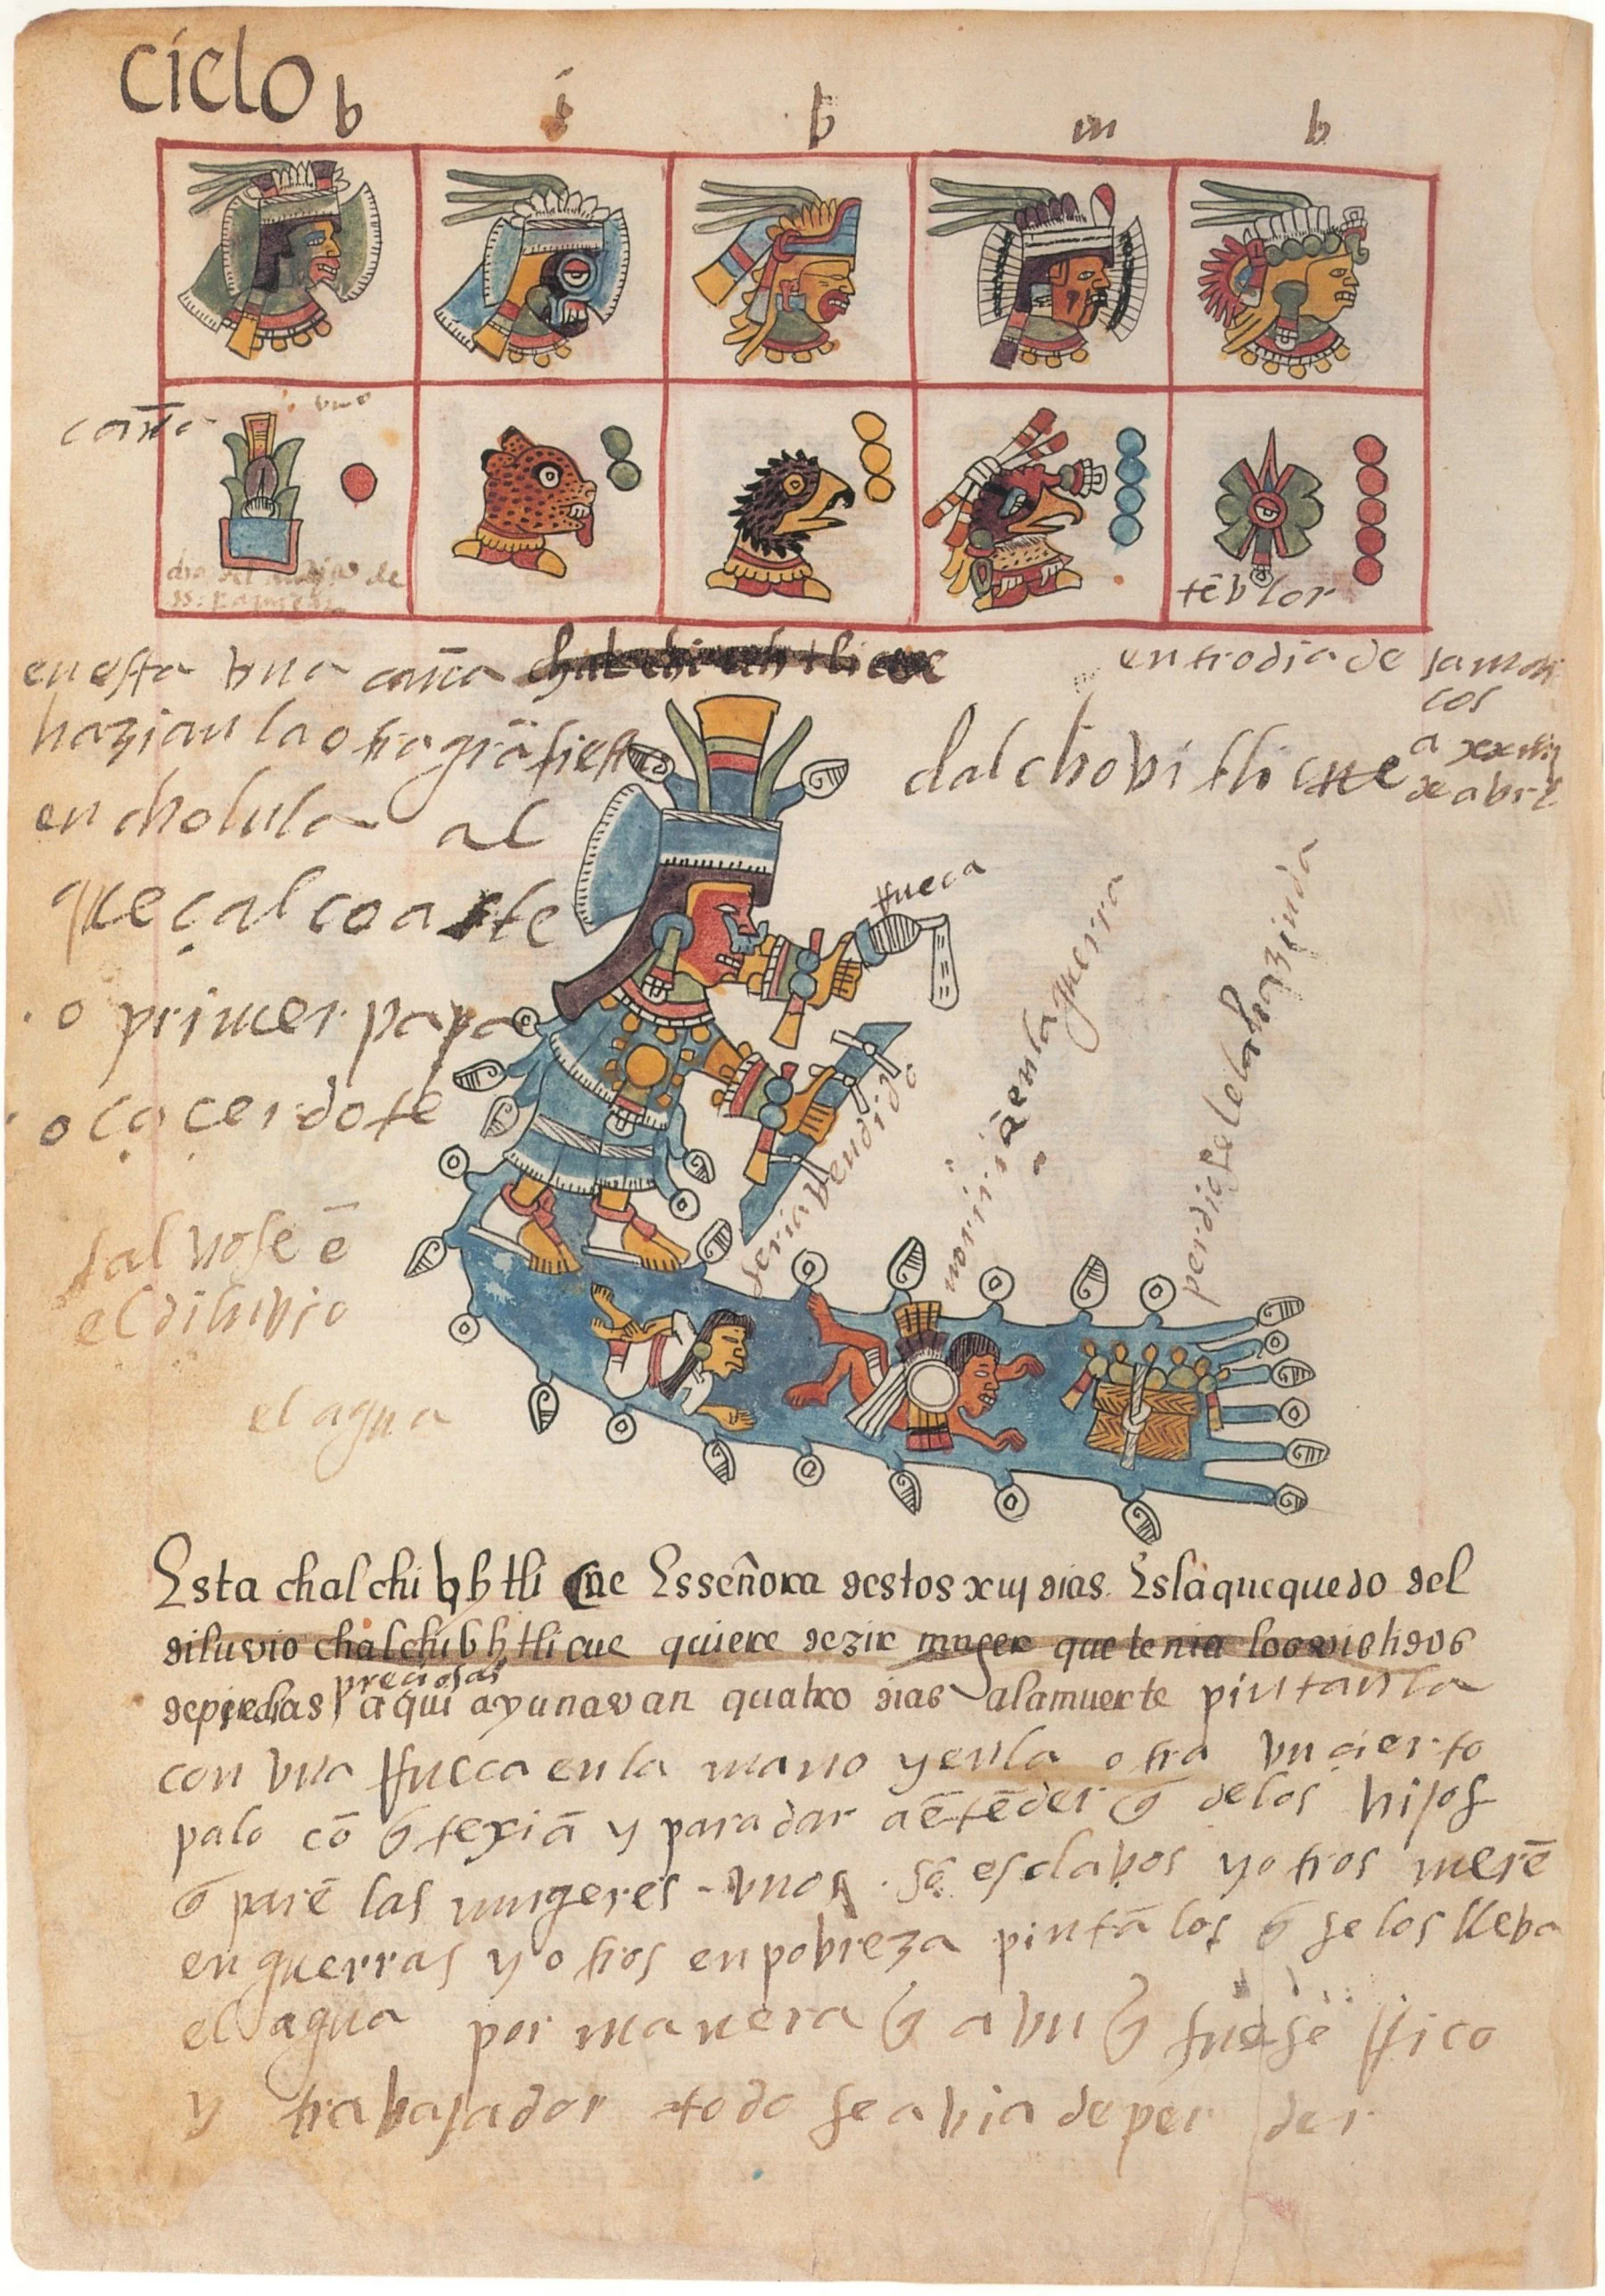 ciclo
b i b m b
caña
uno
tēblor
en esta una caña chalchiuhtlicue
hazian la otra grā fiesta
en cholula al
queçalcoatle
o primer papa
o çaçerdote
entro dia de sa marcos
a xxv
de abril
chalchovitlicue
rrueca
seria vendido
moririā en la guerra
perdiose la hazienda
salvose ē
el diluvio
el agua
Esta chalchiuhtlicue Es señora destos xiij dias. Es la que quedo del
diluvio chalchiuhtlicue quiere dezir muger que tenia los vestidos
de piedras preciosas aqui ayunavan quatro dias a la muerte pintanla
con una rrueca en la mano y en la otra un cierto
palo cō q̄ texiā y para dar a ētēder q̄ de los hijos
q̄ parē las mugeres unos sō esclavos y otros merē
en guerras y otros en pobreza pintālos q̄ se los lleba
el agua por manera q̄ a un q̄ fuese rrico
y trabajador todo se abia de perder